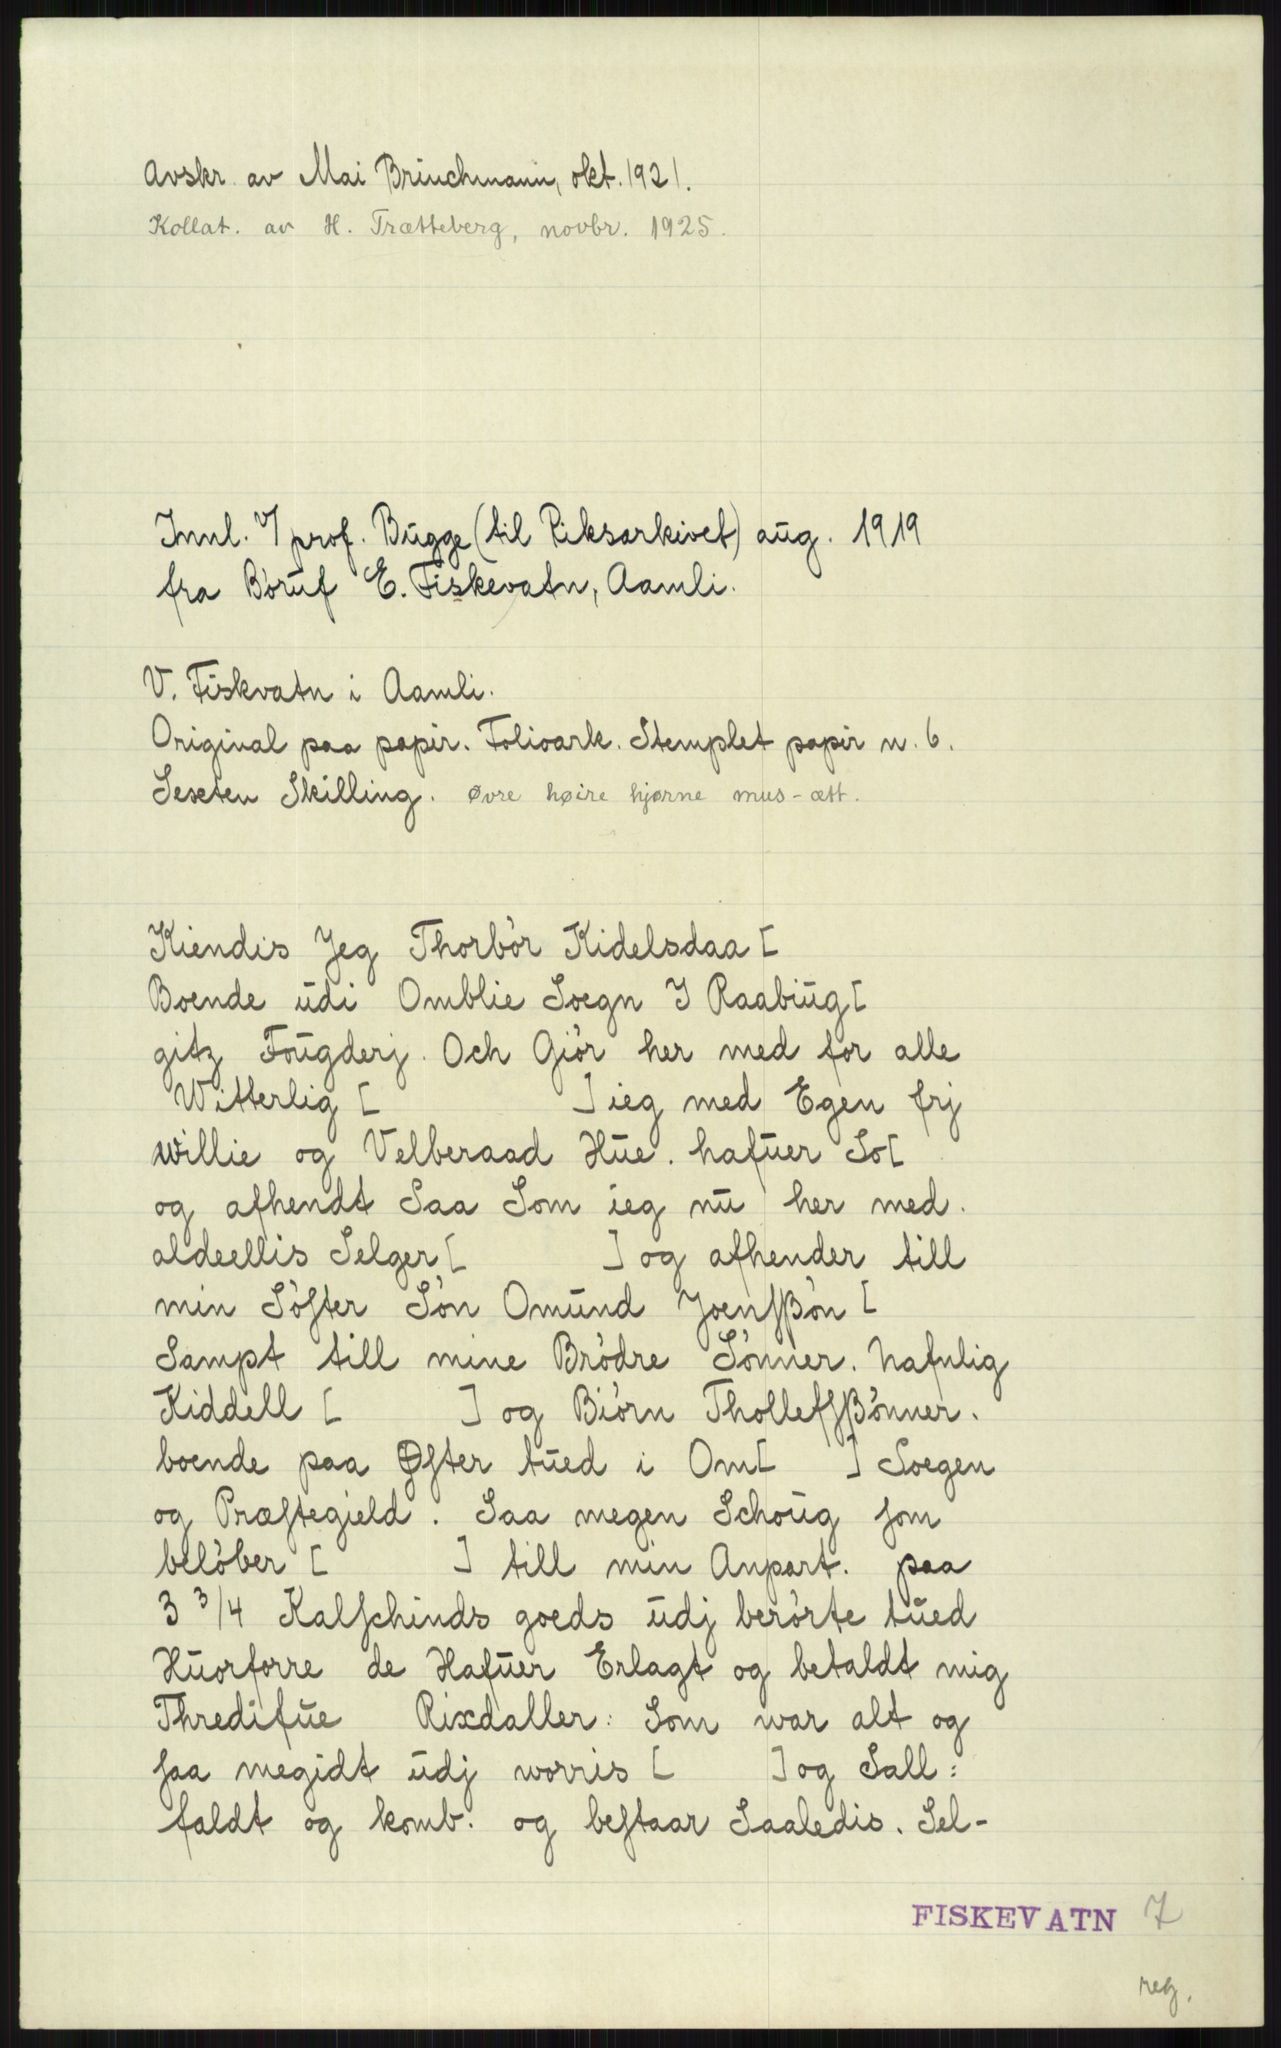 Avskr. av Mai Brinchmann, okt. 1921.
Kollat. av H. Trætteberg, novbr. 1925.
Innl. v/ prof. Bugge (til Riksarkivet) aug. 1919
fra Boruf E. Fiskevatn, Aamli.
V. Fiskvatn i Aamli.
Original paa papir. Folioark. Stemplet papir n. 6.
Sexten Skilling. øvre høire hjørne mus-ætt.
Kiendis Jeg Thorbór Kidelsdaa [
Boende udi Omblie Soegn I Raabiug [
gitz Fougderj. Och Giór her med for alle
Witterlig [ ] ieg med Egen frj
willie og Velberaad Hue. hafuer So [
og afhendt Saa Som ieg nu her med.
aldeellis Selger [ ] og afhender till
min Sóſter Són Omund Joenſßón [
Sampt till mine Bródre Sónner. Nafnlig
Kiddell [ ] og Biórn Tholleſſßónner.
boende paa Øſter tued i Om [ ] Soegen
og Præſtegield. Saa megen Schoug ſom
belóber [ ] till min Anpart. paa
3 3/4 Kalſchinds goeds udj berórte tued
Huorforre de Hafuer Erlagt og betaldt mig
Thredifue Rixdaller: Som war alt og
ſaa megidt udj worris [ ] og Sall:
faldt og komb. og beſtaar Saaledis. Sel-
FISKEVATN 7
reg.